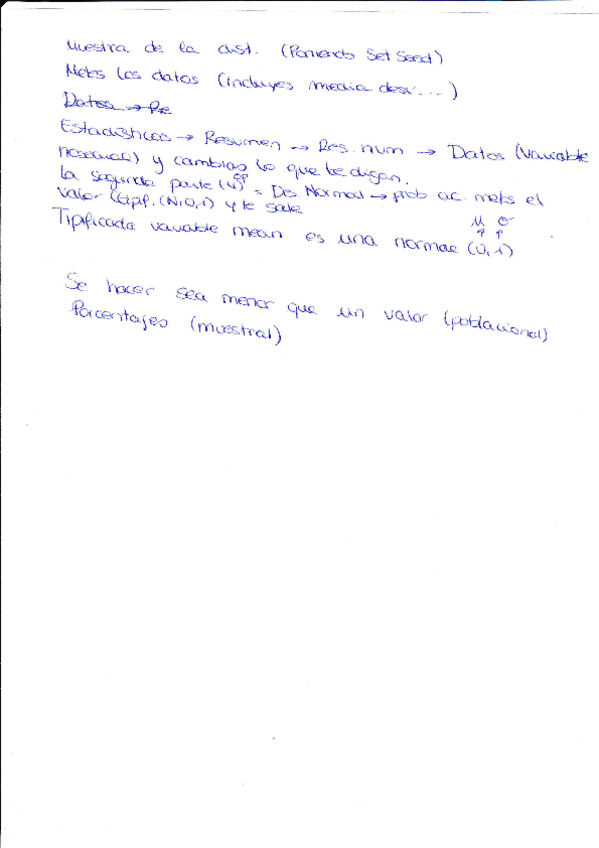 Muestra de la dist. (Poniendo Set Seed)
Metes los datos (incluyes media desv....)
Datos → Re
Estadísticos → Resumen → Res. num → Datos (Variable
necesaria) y cambias lo que te digan.
La segunda parte (4) = Dis. Normal → prob ac. metes el
valor (tipf. (N(0,1) y te sale
μ σ
↑ ↑
Tipificada variable mean es una normal (0,1)
Se hacer sea menor que un valor (poblacional)
Porcentajes (muestral)